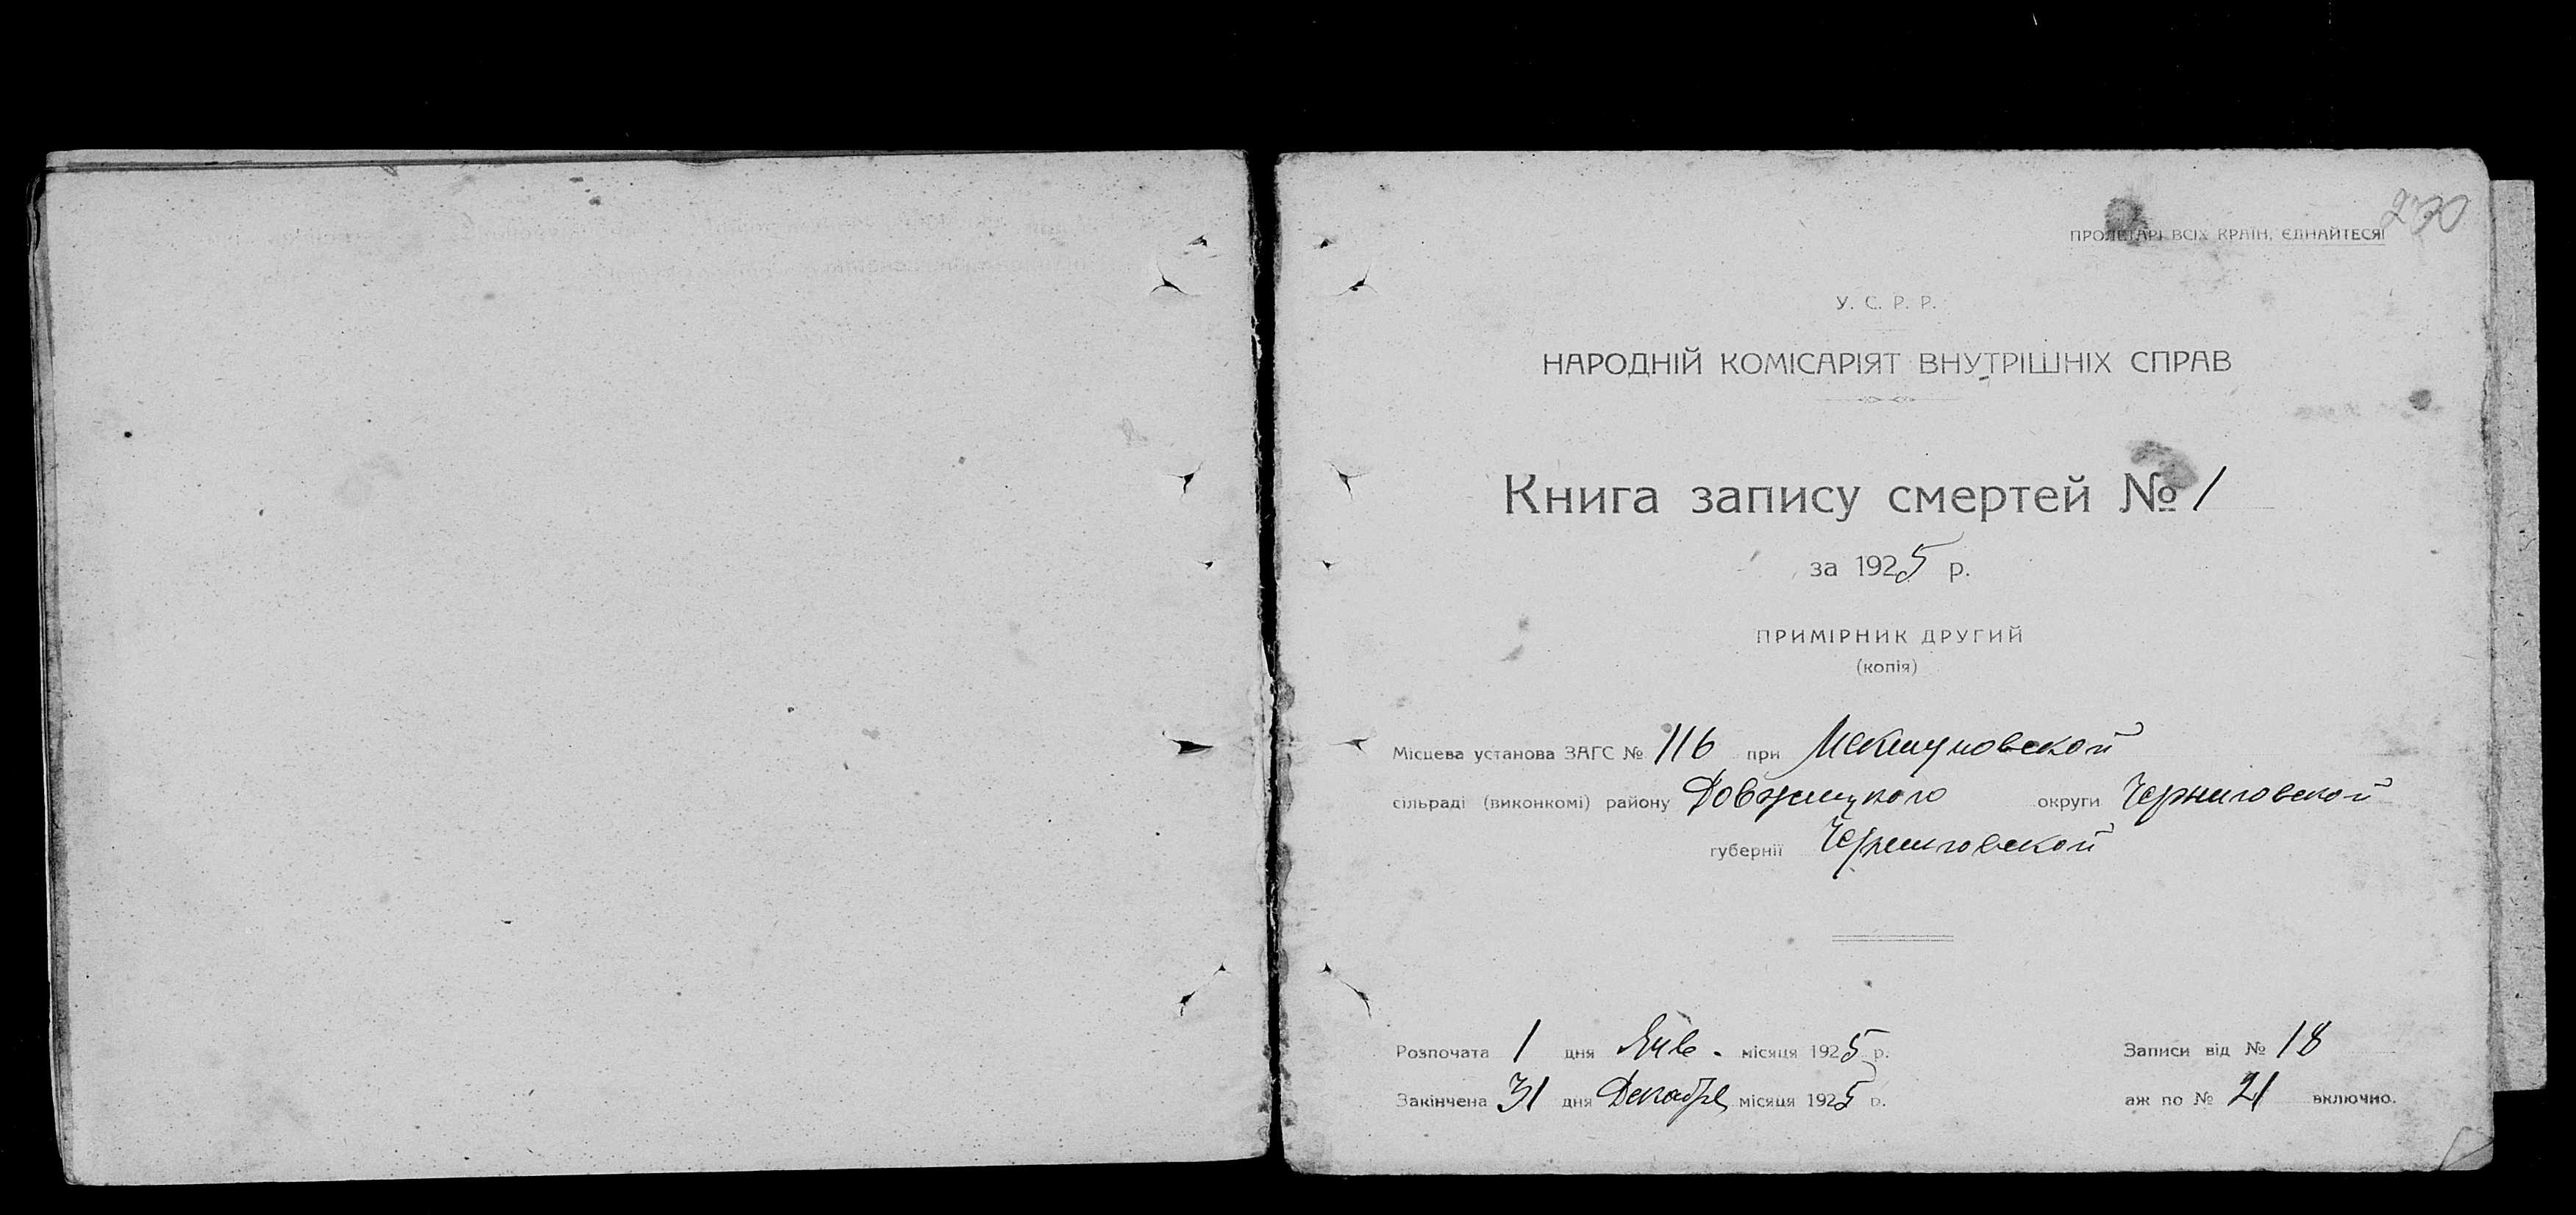 270
ПРОЛЕТАРІ ВСІХ КРАЇН, ЄДНАЙТЕСЯ!
У. С. Р. Р.
НАРОДНІЙ КОМІСАРІЯТ ВНУТРІШНІХ СПРАВ
Книга запису смертей № 1
за 1925 р.
ПРИМІРНИК ДРУГИЙ
(копія)
Місцева установа ЗАГС № 116 при
сільраді (виконкомі) району Довжицкого округи Черниговской
губернії Черниговской
Розпочата 1 дня Янв. місяця 1925 р. Записи від № 18
Закінчена 31 дня Декабря місяця 1925 р. аж по № 21 включно.